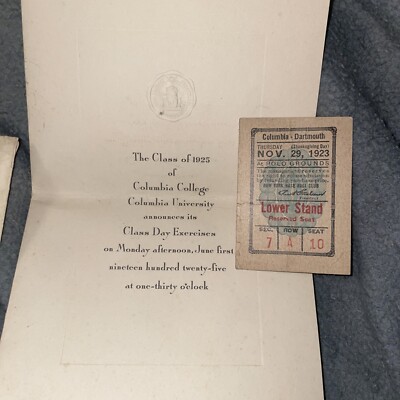 The Class of 1925
of
Columbia College
Columbia University
announces its
Class Day Exercises
on Monday afternoon, June first
nineteen hundred twenty-five
at one-thirty o'clock
Columbia - Dartmouth
THURSDAY (Thanksgiving Day)
NOV. 29, 1923
At POLO GROUNDS
NEW YORK BASE BALL CLUB
President
Lower Stand
Reserved Seat
SEC. ROW SEAT
7 A 10